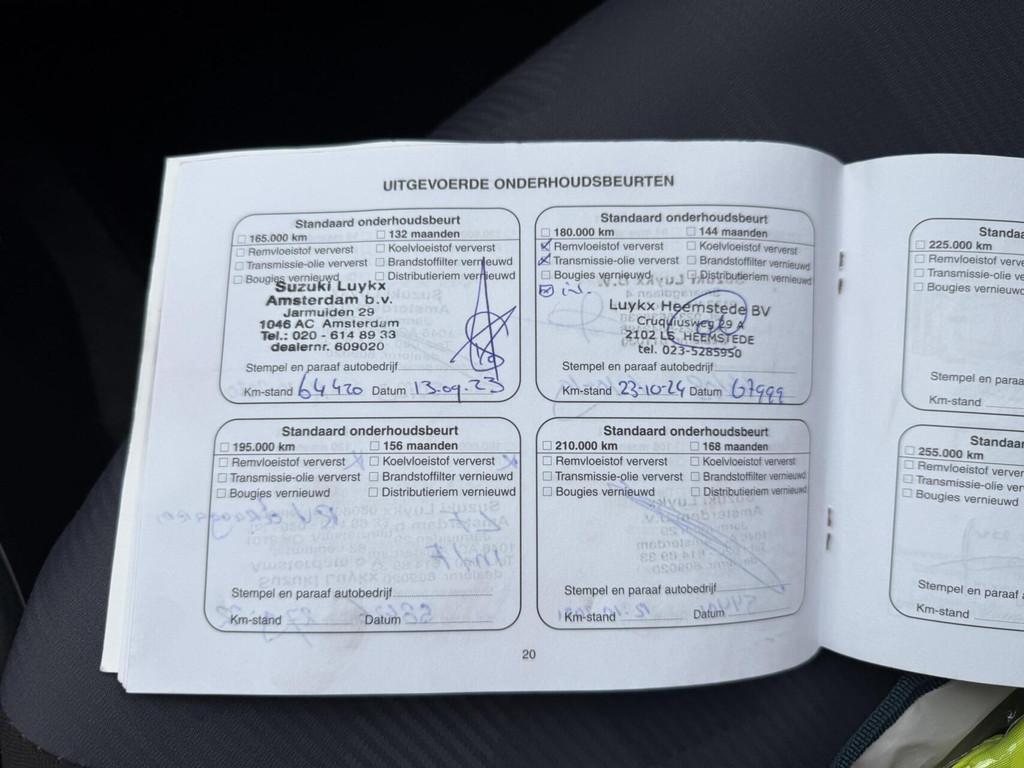 UITGEVOERDE ONDERHOUDSBEURTEN
Standaard onderhoudsbeurt
☐ 165.000 km ☐ 132 maanden
☐ Remvloeistof ververst ☐ Koelvloeistof ververst
☐ Transmissie-olie ververst ☐ Brandstoffilter vernieuwd
☐ Bougies vernieuwd ☐ Distributieriem vernieuwd
Suzuki Luykx
Amsterdam b.v.
Jarmuiden 29
1046 AC Amsterdam
Tel.: 020 - 614 89 33
dealernr. 609020
Stempel en paraaf autobedrijf
Km-stand 64420 Datum 13.09.23
Standaard onderhoudsbeurt
☐ 180.000 km ☐ 144 maanden
☒ Remvloeistof ververst ☐ Koelvloeistof ververst
☒ Transmissie-olie ververst ☐ Brandstoffilter vernieuwd
☐ Bougies vernieuwd ☐ Distributieriem vernieuwd
Luykx Heemstede BV
Cruquiusweg 29 A
2102 LS HEEMSTEDE
tel. 023-5285950
Stempel en paraaf autobedrijf
Km-stand 23-10-24 Datum 67999
Standaard onderhoudsbeurt
☐ 195.000 km ☐ 156 maanden
☐ Remvloeistof ververst ☐ Koelvloeistof ververst
☐ Transmissie-olie ververst ☐ Brandstoffilter vernieuwd
☐ Bougies vernieuwd ☐ Distributieriem vernieuwd
Stempel en paraaf autobedrijf
Km-stand Datum
Standaard onderhoudsbeurt
☐ 210.000 km ☐ 168 maanden
☐ Remvloeistof ververst ☐ Koelvloeistof ververst
☐ Transmissie-olie ververst ☐ Brandstoffilter vernieuwd
☐ Bougies vernieuwd ☐ Distributieriem vernieuwd
Stempel en paraaf autobedrijf
Km-stand Datum
20
Standaa
☐ 225.000 km
☐ Remvloeistof verver
☐ Transmissie-olie ve
☐ Bougies vernieuwd
Stempel en paraaf
Km-stand
Standaar
☐ 255.000 km
☐ Remvloeistof ververst
☐ Transmissie-olie ver
☐ Bougies vernieuwd
Stempel en paraaf a
Km-stand